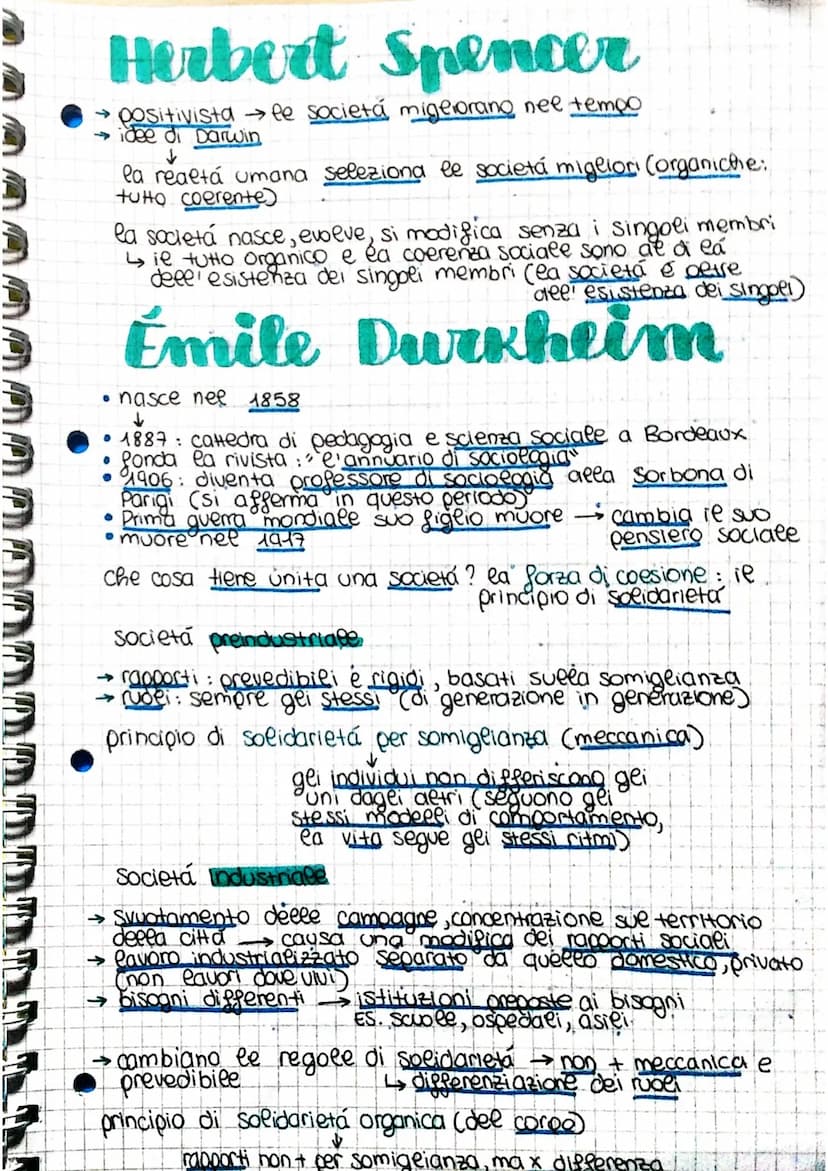 Herbert Spencer
→ positivista → le societá migliorano nel tempo
→ idee di Darwin
↓
la realtá umana seleziona le societá migliori (organiche:
tutto coerente)
la societá nasce, evolve, si modifica senza i singoli membri
↳ il tutto organico e la coerenza sociale sono al di lá
dell'esistenza dei singoli membri (la societá é oltre
dell'esistenza dei singoli)
Émile Durkheim
• nasce nel 1858
↓
• 1887: cattedra di pedagogia e scienza sociale a Bordeaux
• fonda la rivista: "l'annuario di sociologia"
• 1906: diventa professore di sociologia alla Sorbona di
Parigi (si afferma in questo periodo)
• Prima guerra mondiale suo figlio muore → cambia il suo
pensiero sociale
• muore nel 1917
che cosa tiene unita una societá? la forza di coesione: il
principio di solidarietá
societá preindustriale
→ rapporti: prevedibili e rigidi, basati sulla somiglianza
→ ruoli: sempre gli stessi (di generazione in generazione)
principio di solidarietá per somiglianza (meccanica)
↓
gli individui non differiscono gli
uni dagli altri (seguono gli
stessi modelli di comportamento,
la vita segue gli stessi ritmi)
societá industriale
→ svuotamento delle campagne, concentrazione sul territorio
della cittá → causa una modifica dei rapporti sociali
→ lavoro industrializzato separato da quello domestico, privato
(non lavori dove vivi)
→ bisogni differenti → istituzioni preposte ai bisogni
ES. scuole, ospedali, asili.
→ cambiano le regole di solidarietá → non + meccanica e
prevedibile
↳ differenziazione dei ruoli
principio di solidarietá organica (del corpo)
↓
rapporti non + per somiglianza, ma x differenza